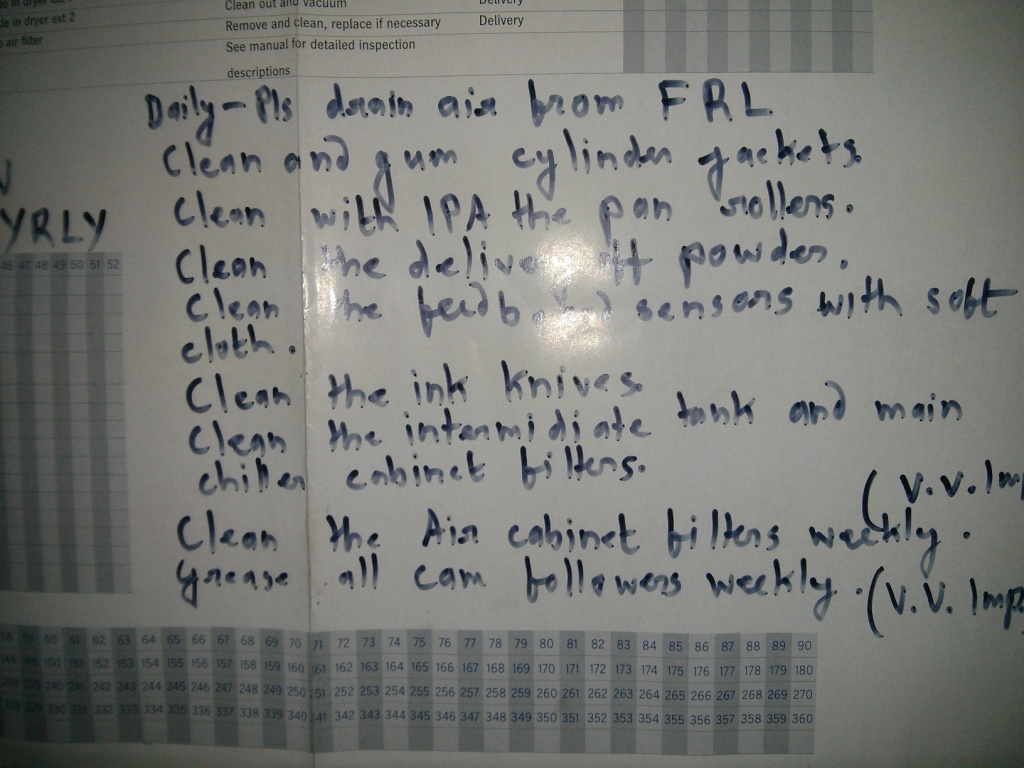 Clean out and vacuum Delivery
de in dryer ext 2 Remove and clean, replace if necessary Delivery
air filter See manual for detailed inspection
descriptions
Daily - Pls drain air from FRL
Clean and gum cylinder jackets.
Clean with IPA the pan rollers.
YRLY
Clean the powder.
46 47 48 49 50 51 52
Clean the sensors with soft
cloth.
Clean the ink knives.
Clean the intermidiate tank and main
chiller cabinet filters.
(V.V. Imp
Clean the Air cabinet filters weekly.
Grease all cam followers weekly. (V.V. Imp
58 59 60 61 62 63 64 65 66 67 68 69 70 71 72 73 74 75 76 77 78 79 80 81 82 83 84 85 86 87 88 89 90
149 150 151 152 153 154 155 156 157 158 159 160 161 162 163 164 165 166 167 168 169 170 171 172 173 174 175 176 177 178 179 180
239 240 241 242 243 244 245 246 247 248 249 250 251 252 253 254 255 256 257 258 259 260 261 262 263 264 265 266 267 268 269 270
328 329 330 331 332 333 334 335 336 337 338 339 340 341 342 343 344 345 346 347 348 349 350 351 352 353 354 355 356 357 358 359 360